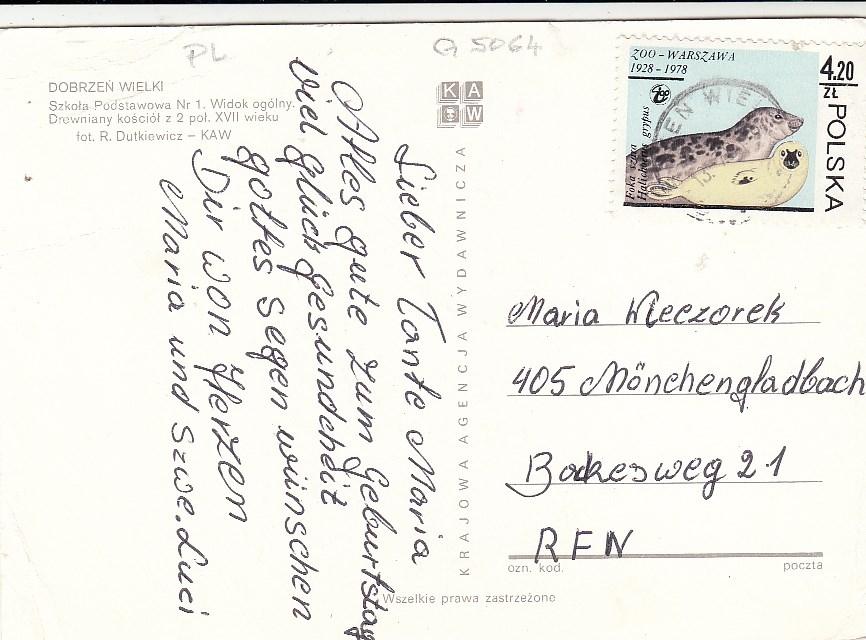 PL
G 5064
DOBRZEŃ WIELKI
Szkoła Podstawowa Nr 1. Widok ogólny.
Drewniany kościół z 2 poł. XVII wieku
fot. R. Dutkiewicz — KAW
KAW
KRAJOWA AGENCJA WYDAWNICZA
Lieber Tante Maria
Alles gute zum Geburtstag
viel glück gesundcheit
gottes segen wünschen
Dir won Herzen
Maria und Szwe. Luci
ZOO - WARSZAWA
1928 - 1978
4.20
ZŁ
POLSKA
Foka szara
Halichoerus grypus
EN WIE
Maria Wieczorek
405 Mönchengladbach
weg 21
RFN
ozn. kod.
poczta
Wszelkie prawa zastrzeżone